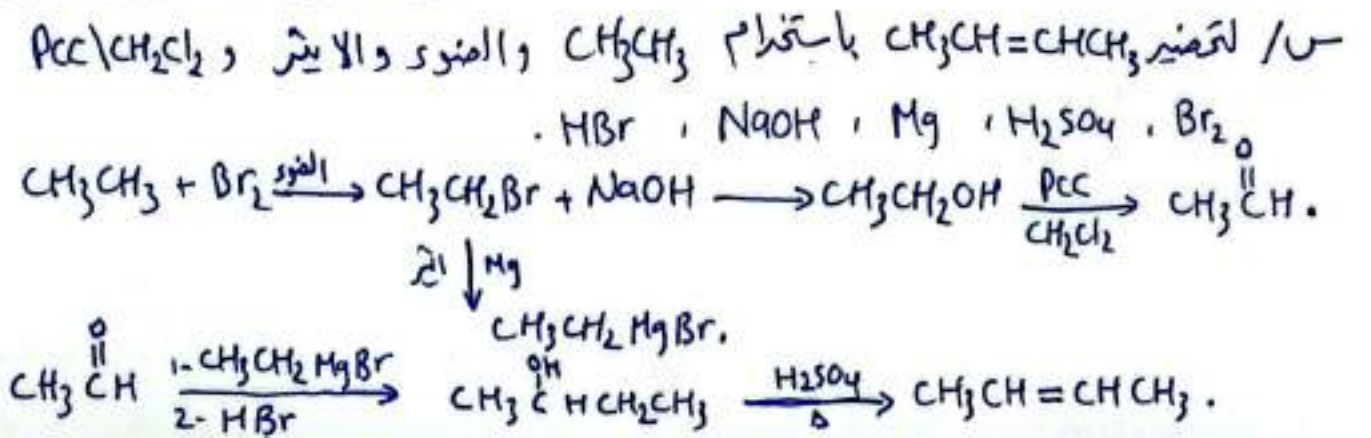 س/ لتحضير CH3CH=CHCH3 باستخدام CH3CH3 والضوء والايثر و PCC\CH2Cl2
Br2 ، H2SO4 ، Mg ، NaOH ، HBr .
CH3CH3 + Br2 الضوء → CH3CH2Br + NaOH → CH3CH2OH PCC CH2Cl2 → CH3CH. O
ايثر ↓ Mg
CH3CH2MgBr.
CH3CH O 1- CH3CH2MgBr 2- HBr → CH3CHCH2CH3 OH H2SO4 Δ → CH3CH=CHCH3.